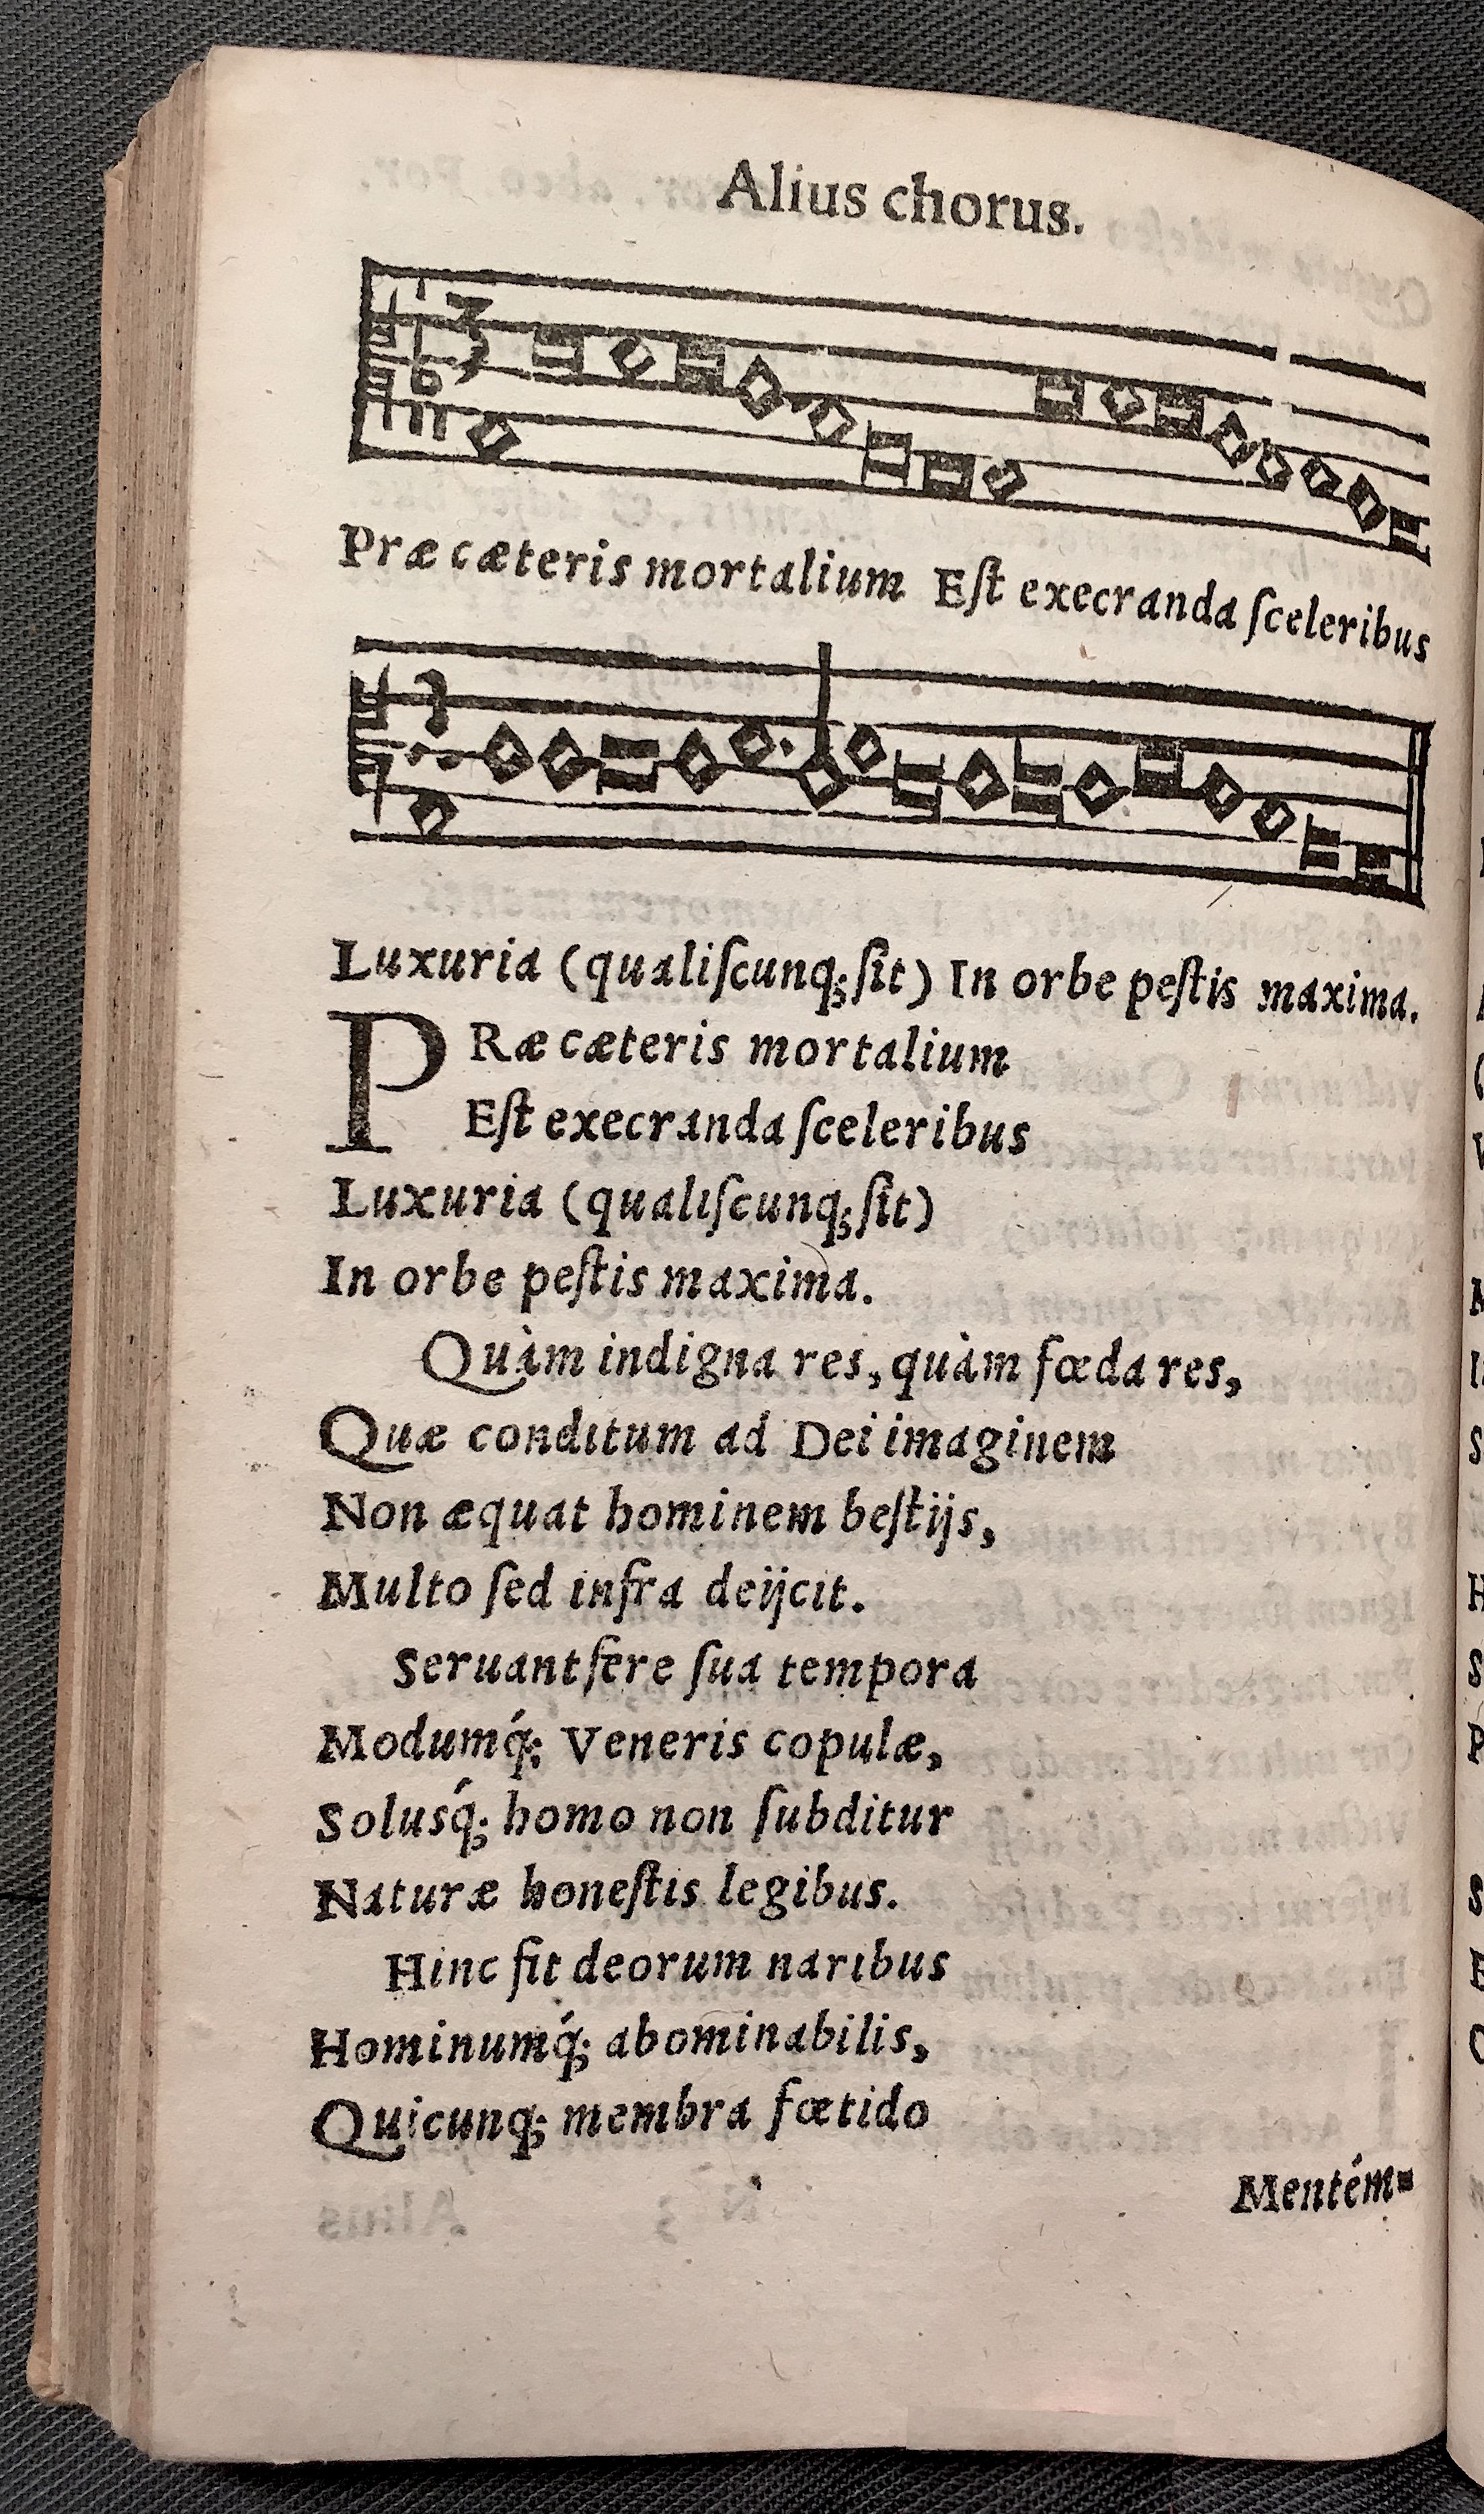 Alius chorus.
3
Præ cæteris mortalium Eſt execranda ſceleribus
Luxuria (qualiſcunq;ſit) In orbe peſtis maxima.
PRæ cæteris mortalium
Eſt execranda ſceleribus
Luxuria (qualiſcunq;ſit)
In orbe peſtis maxima.
Quàm indigna res, quàm fœda res,
Quæ conditum ad Dei imaginem
Non æquat hominem beſtijs,
Multo ſed infra deijcit.
Seruant fere ſua tempora
Modumq́; Veneris copulæ,
Solusq́; homo non ſubditur
Naturæ honeſtis legibus.
Hinc fit deorum naribus
Hominumq́; abominabilis,
Quicunq; membra fœtido
Mentém=